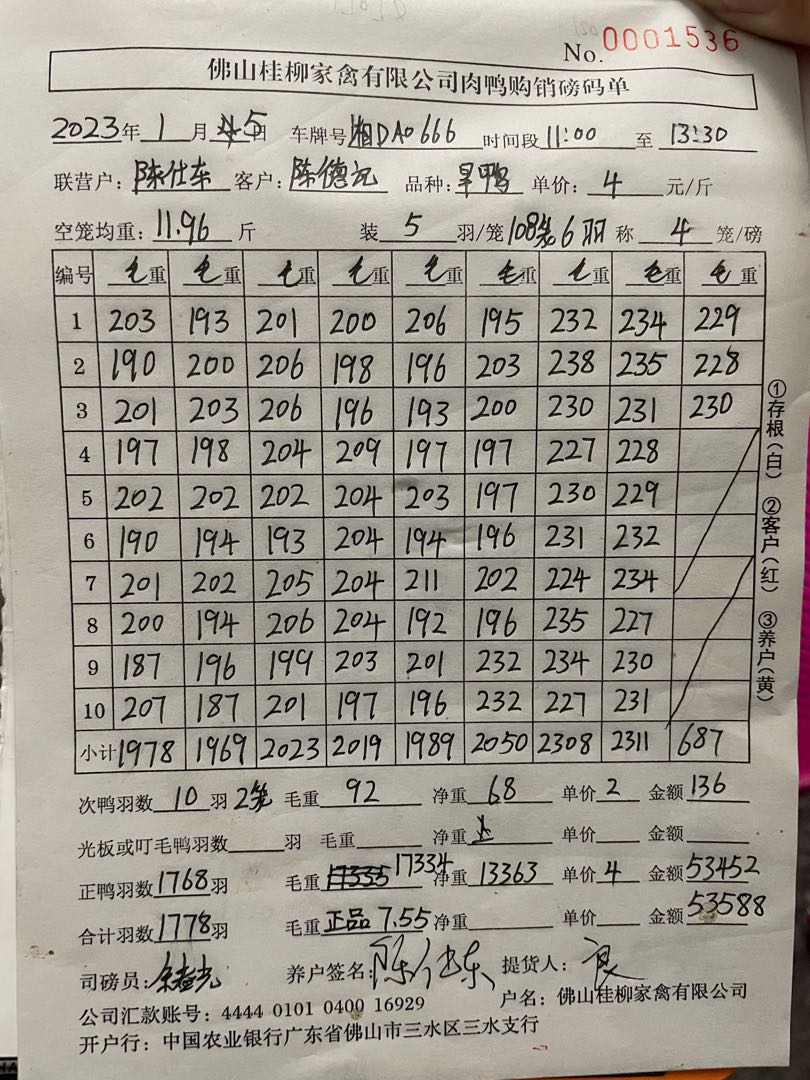 No. 0001536
佛山桂柳家禽有限公司肉鸭购销磅码单
2023年 1 月 5日 车牌号湘DA0666 时间段11:00 至 13:30
联营户：陈仕东 客户：陈德记 品种：旱鸭 单价：4 元/斤
空笼均重：11.96 斤 装 5 羽/笼 108笼6羽 称 4 笼/磅
编号 毛重 毛重 毛重 毛重 毛重 毛重 毛重 毛重 毛重
1 203 193 201 200 206 195 232 234 229
2 190 200 206 198 196 203 238 235 228
3 201 203 206 196 193 200 230 231 230
4 197 198 204 209 197 197 227 228
5 202 202 202 204 203 197 230 229
6 190 194 193 204 194 196 231 232
7 201 202 205 204 211 202 224 234
8 200 194 206 204 192 196 235 227
9 187 196 199 203 201 232 234 230
10 207 187 201 197 196 232 227 231
小计 1978 1969 2023 2019 1989 2050 2308 2311 687
次鸭羽数 10 羽 2笼 毛重 92 净重 68 单价 2 金额 136
光板或叮毛鸭羽数 羽 毛重 净重 单价 金额
正鸭羽数1768羽 毛重 17334 净重 13363 单价 4 金额53452
合计羽数1778羽 毛重 正品7.55 净重 单价 金额53588
司磅员： 养户签名：陈仕东 提货人：
公司汇款账号：4444 0101 0400 16929 户名：佛山桂柳家禽有限公司
开户行：中国农业银行广东省佛山市三水区三水支行
①存根（白） ②客户（红） ③养户（黄）